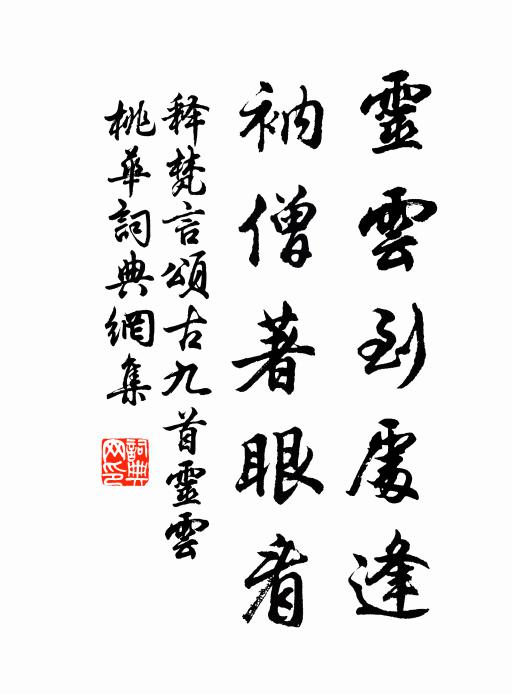 靈雲到處逢
衲僧著眼看
释梵言頌古九首靈雲
桃華詞典網集
詞典网印